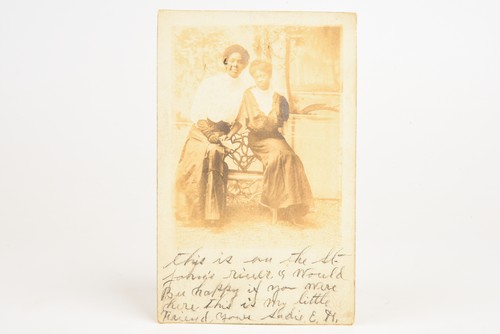 this is on the St-
John's river & Would
Bee happy if you were
here this is my little
Friend, yours Sadie E. H.